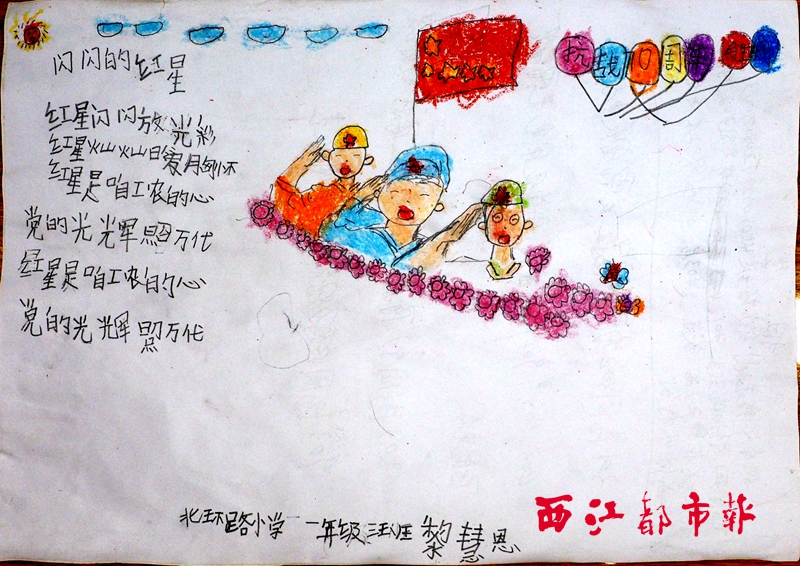 闪闪的红星
抗战70周年胜利
红星闪闪放光彩
红星灿灿暖胸怀
红星是咱工农的心
党的光辉照万代
红星是咱工农的心
党的光辉照万代
北环路小学 一年级三班 黎慧恩
西江都市报